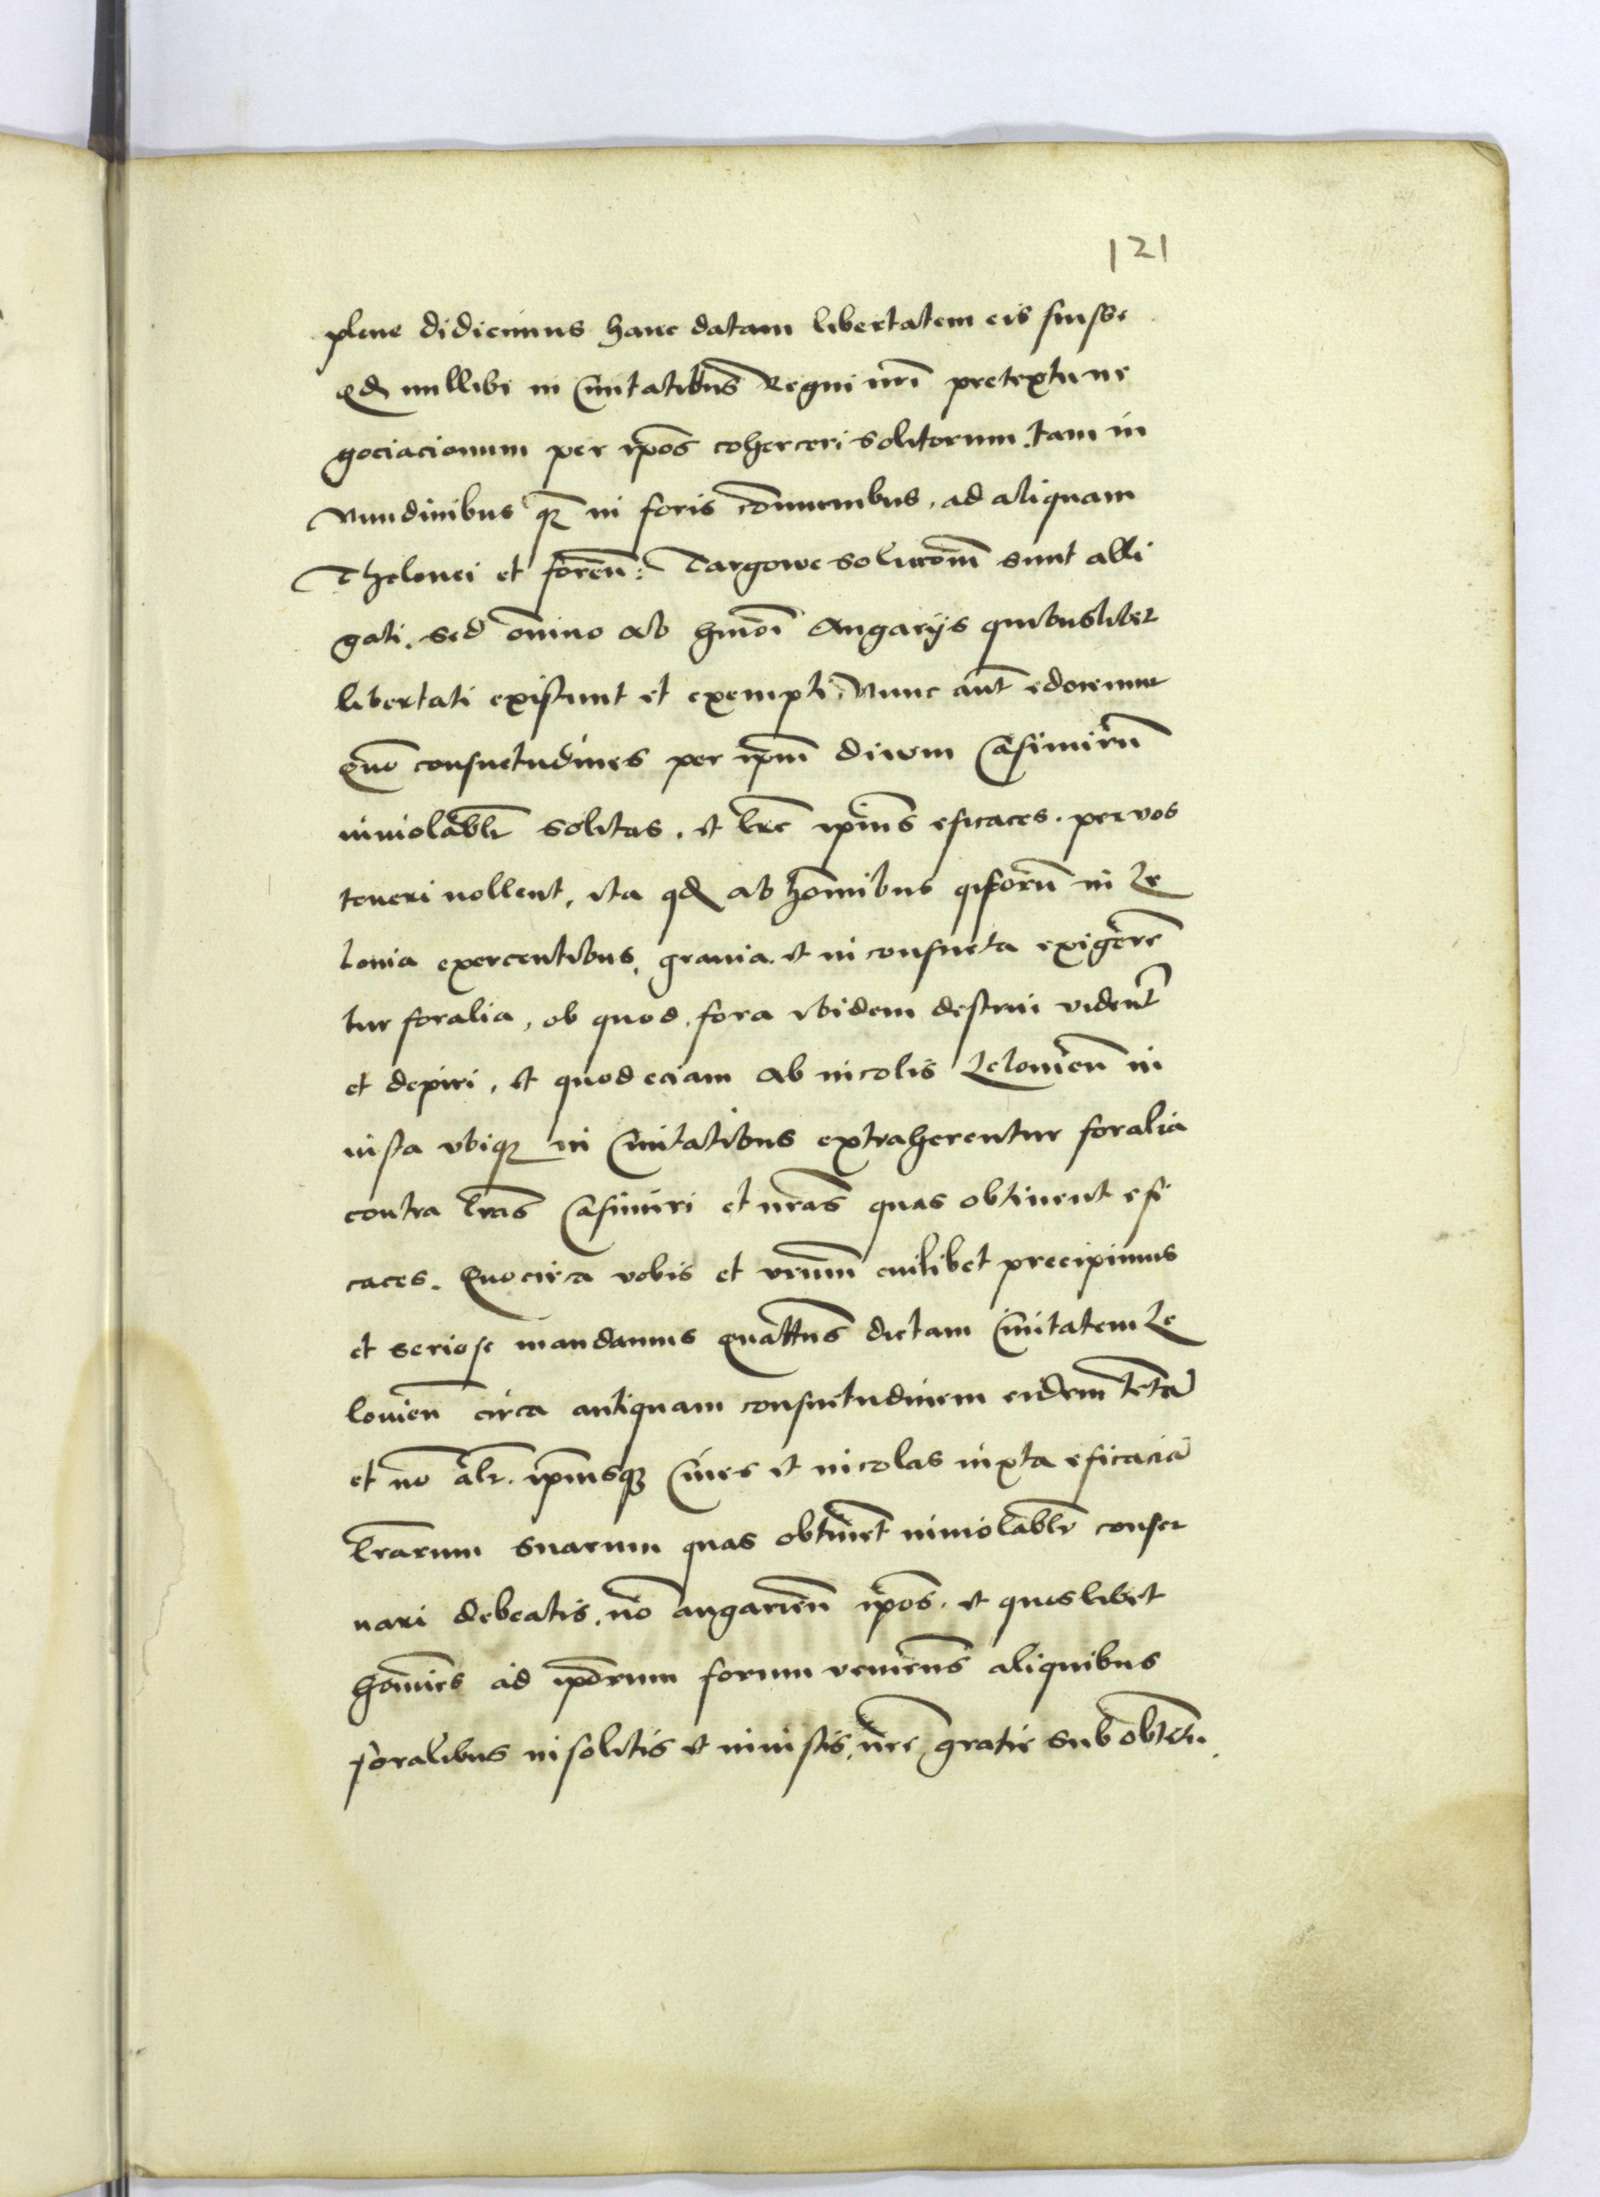 121
plene didicimus hanc datam libertatem eis fuisse
qd nullibi in Ciuitatibus Regni nri pretextu ne
gociacionum per ipos coherceri solitorum tam in
Nundinibus q̃ in foris comunibus, ad aliquam
Thelonei et foren: Targowe solucom̃ sunt alli
gati. Sed omino ab hmoi Angarijs quibuslibet
libertati existunt et exempti, Nunc aut edocemur
Quo consuetudines per ipm diuum Casimirũ
inuiolablr solitas, et lre ipius eficaces. per vos
teneri nollent, ita qd ab hominibus ipsorũ in Le
lonia exercentibus, grauia et in consueta exigeren
tur foralia, ob quod, fora ibidem destrui vident
et depiri, et quod eciam ab incolis Lelouien in
iusta vbiq̃ in Ciuitatibus extraherentur foralia
contra lras Casimiri et nras quas obtinent efi
caces. Quocirca vobis et vrum cuilibet precipimus
et seriose mandamus quattus dictam Ciuitatem Le
louien circa antiquam consuetudinem eidem tentã
et no alr. ipiusq̃ Ciues et incolas iuxta eficaciã
lrarum suarum quas obtinet inuiolablr conser
uari debeatis, no angarien ipos, et queslibet
homines ad ipõrum forum venien̄s aliquibus
foralibus insolitis et iniustis, nre gratie sub obtētu.